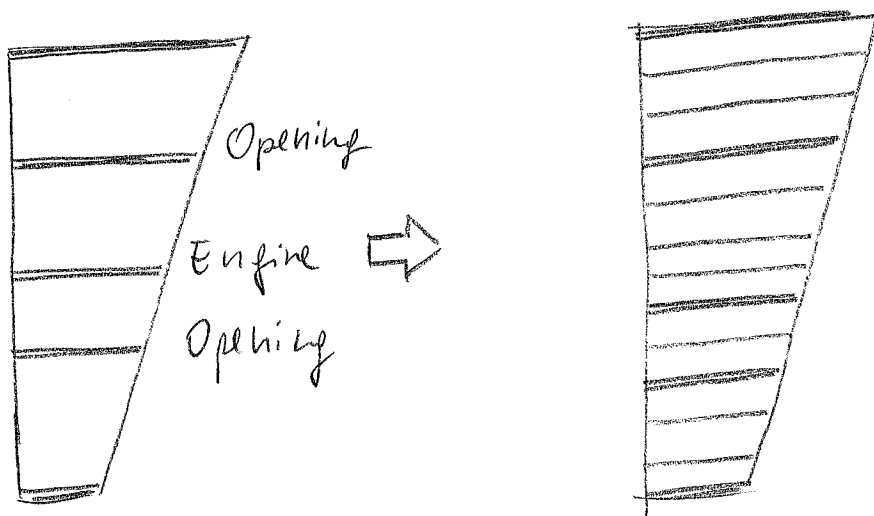 Opening
Engine
Opening